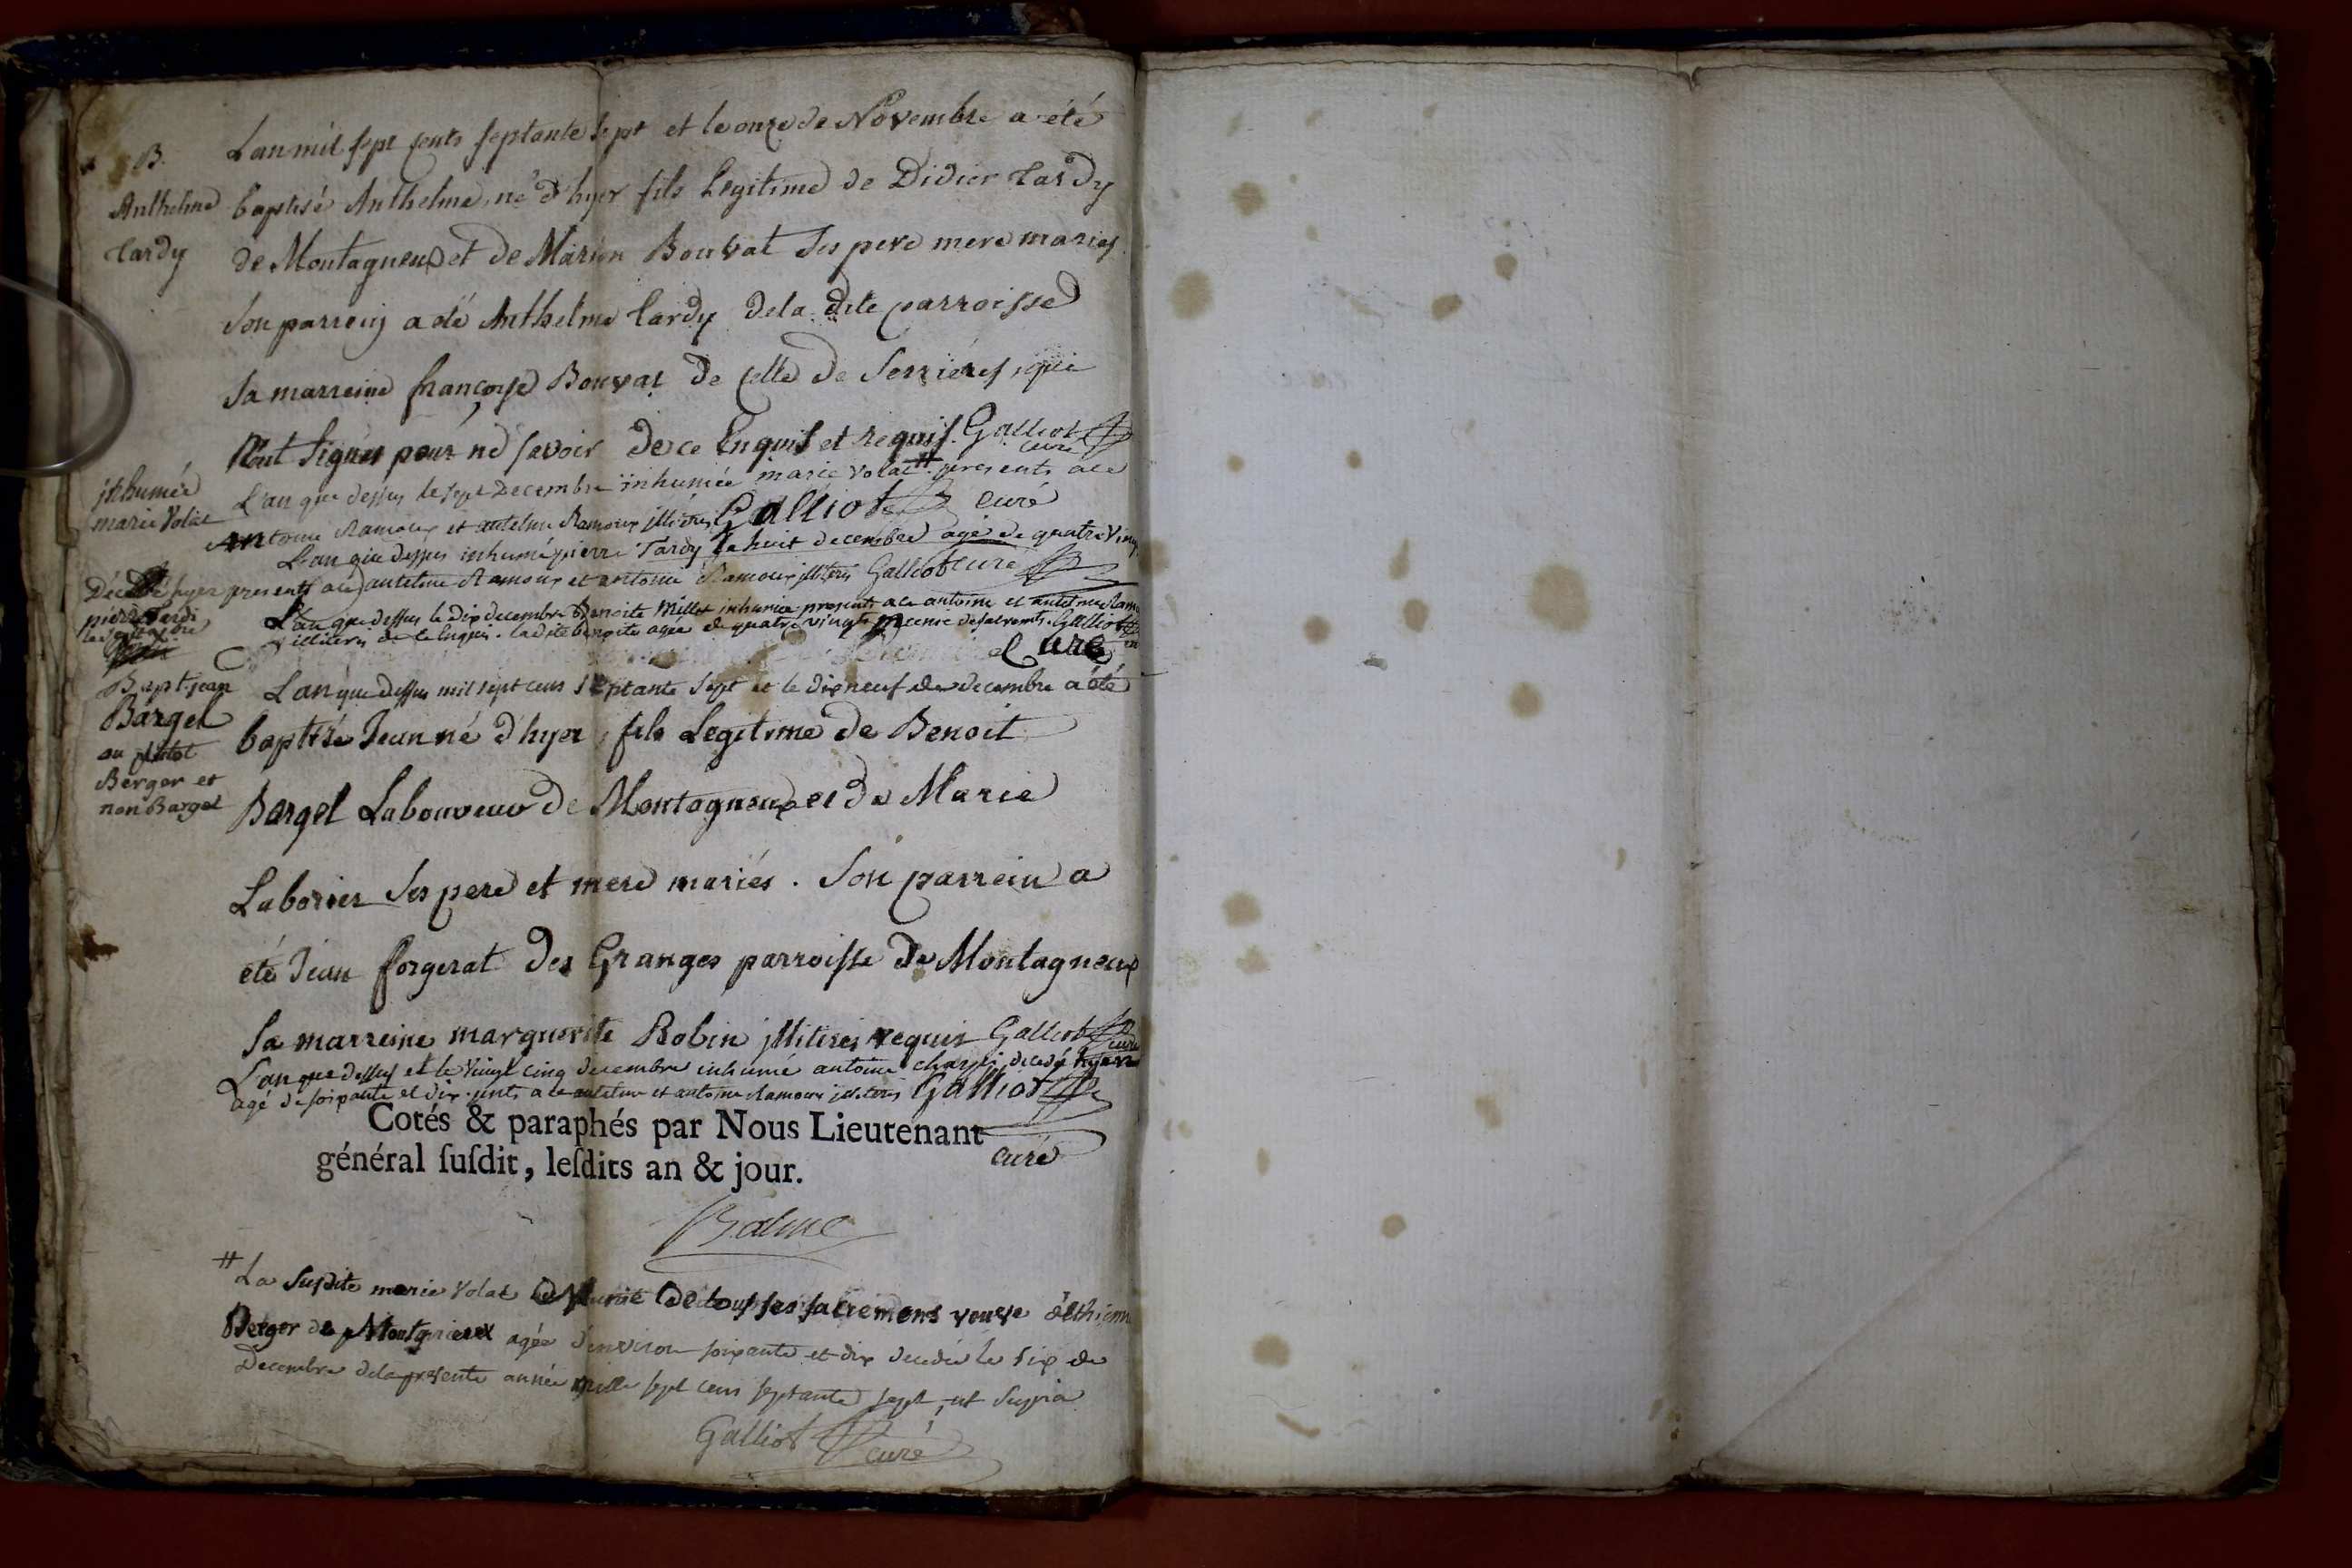 B.
Anthelme
tardy
L'an mil sept cents septante sept et le onze de Novembre a été
baptisé Anthelme, né d'hyer fils legitime de Didier tardy
de Montagneux et de Marion Bouvat ses pere mere mariés
son parrein a été Anthelme tardy de la dite parroisse
sa marreine françoise Bouvat de celle de Serrieres, qui
n'ont signés pour ne savoir de ce Enquis et requis. Galliot
curé
inhumée
marie Volat
L'an que dessus le sept Decembre inhumée marie volat # presents a ce
Antoine Ramoux et antelme Ramoux illiteris Galliot curé
L'an que dessus inhumé pierre Tardy le huit decembre agé de quatre vingt
Décédé hyer presents a ce antelme Ramoux et antoine Ramoux illiteris Galliot curé
pierre Tardi
L'an que dessus le dix decembre Benoite Millet inhumée presents a ce antoine et antelme Ramoux
illiteris de ce Enquis. la dite benoite agée de quatre vingts munie de sacrements. Galliot
Curé
Bapt. jean
Bargel
ou plutot
Berger et
non Bargel
L'an que dessus mil sept cens septante sept et le dix neuf de decembre a été
baptisé Jean né d'hyer, fils Legitime de Benoit
Bargel Laboureur de Montagneux et de Marie
Laborier ses pere et mere mariés. Son parrein a
été Jean forgerat des Granges parroisse de Montagneux
sa marreine marguerite Robin illiteris requis Galliot
curé
L'an que dessus et le vingt cinq decembre inhumé antoine decedé hyer
agé de soixante et dix. pnts a ce antelme et antoine Ramoux illiteris Galliot
curé
Cotés & paraphés par Nous Lieutenant
général ſuſdit, leſdits an & jour.
Balme
# La susdite marie Volat munie de tous ses sacremens veuve d'Ethienne
Berger de Montagnieux agée d'environ soixante et dix decedée le six de
Decembre de la presente année mille sept cens septante sept, ut supra
Galliot curé